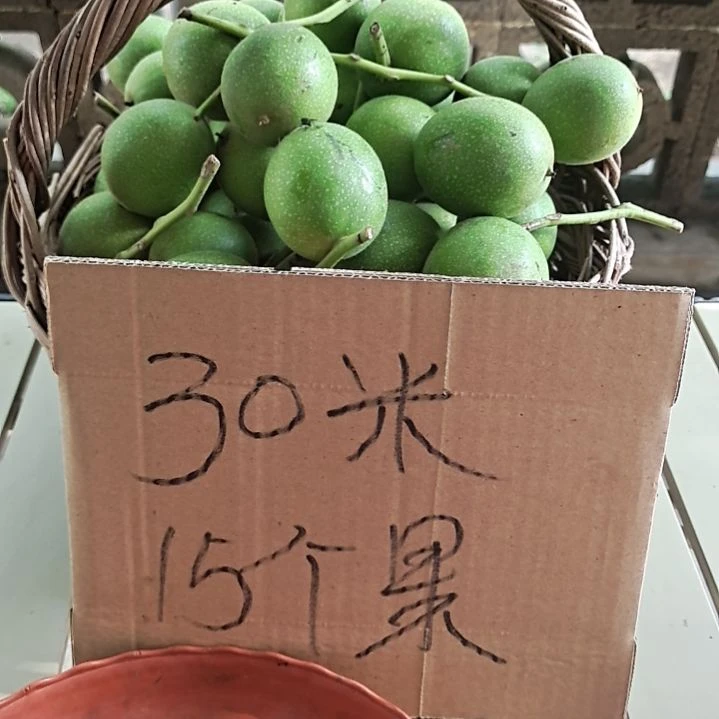 30米
15个果